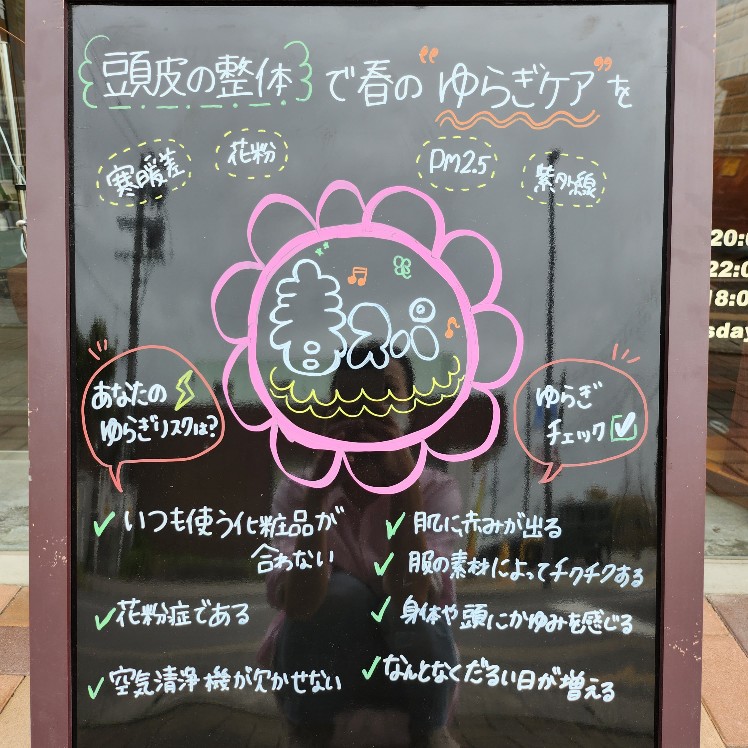 頭皮の整体で春の"ゆらぎケア"を
寒暖差
花粉
PM2.5
紫外線
春スパ
あなたの
ゆらぎリスクは?
ゆらぎ
チェック
いつも使う化粧品が
合わない
花粉症である
空気清浄機が欠かせない
肌に赤みが出る
服の素材によってチクチクする
身体や頭にかゆみを感じる
なんとなくだるい日が増える
20:0
22:0
18:0
sday